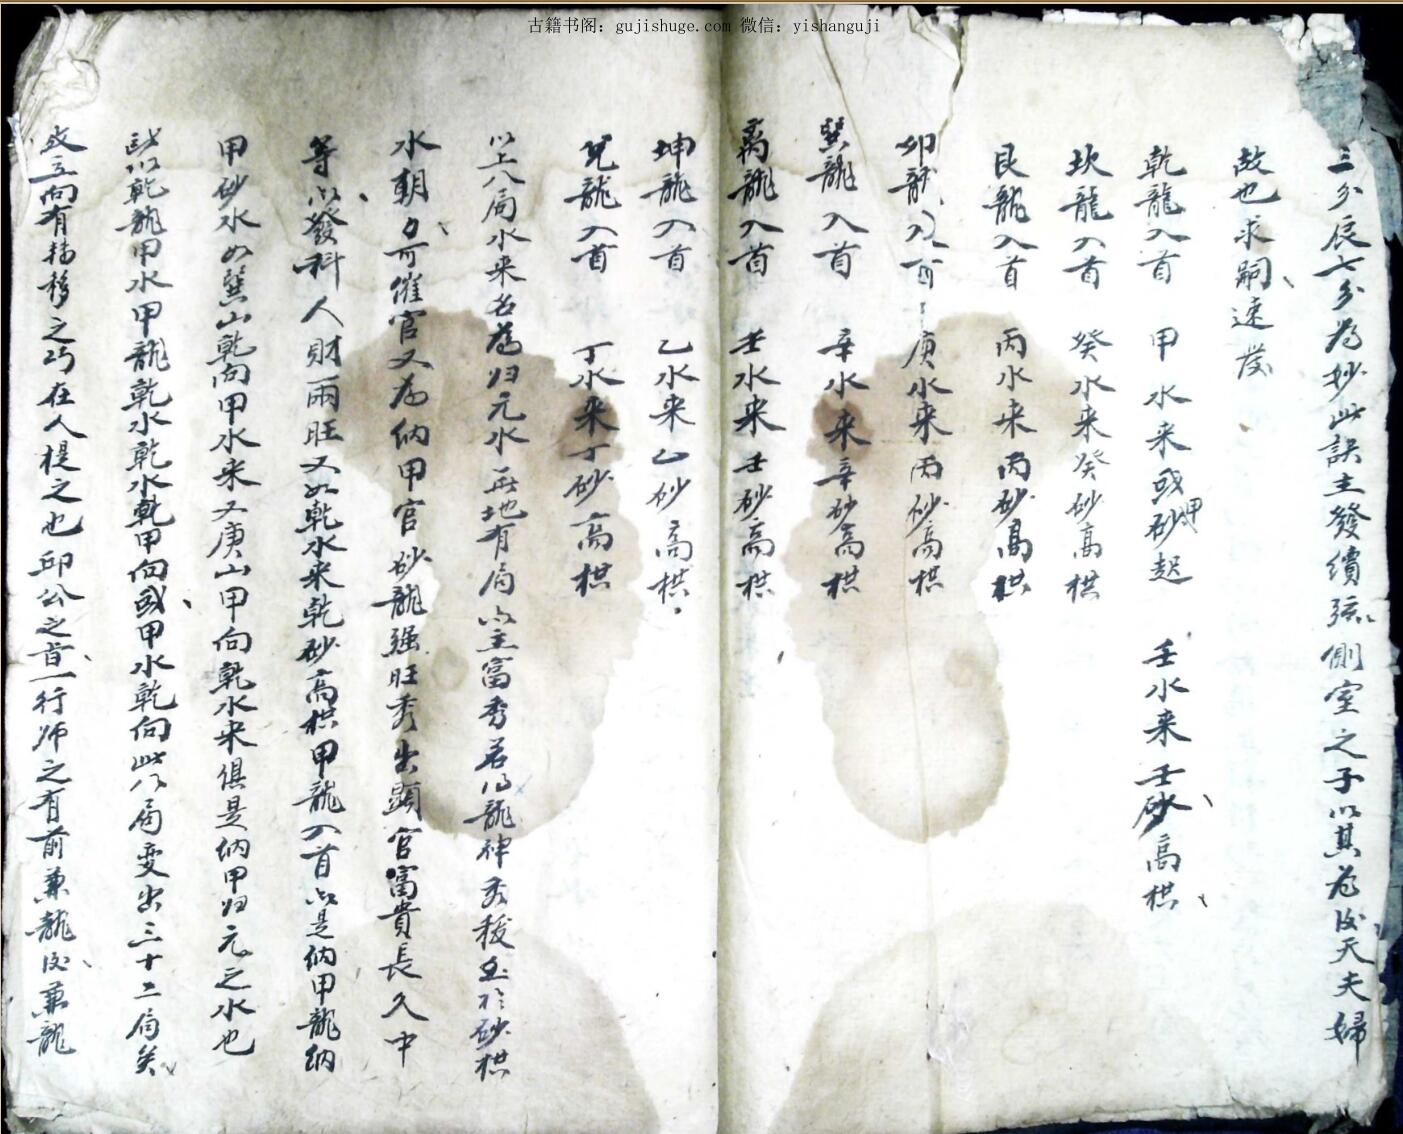 古籍书阁：gujishuge.com 微信：yishanguji
三分辰七分為妙此訣主發續弦側室之子以其為后天夫婦
故也求嗣速發
乾龍入首 甲水来或甲砂起 壬水来壬砂高拱
坎龍入首 癸水来癸砂高拱
艮龍入首 丙水来丙砂高拱
卯龍入首 庚水来丙砂高拱
巽龍入首 辛水来辛砂高拱
离龍入首 壬水来壬砂高拱
坤龍入首 乙水来乙砂高拱
兌龍入首 丁水来丁砂高拱
以上八局水来名為归元水 地有局以主富秀若得龍神秀 至於砂拱
水朝方可催官又為纳甲官砂龍强旺秀出顯官富貴長久中
等以發科人財兩旺又如乾水来乾砂高拱甲龍入首以是纳甲龍纳
甲砂水如巽山乾向甲水来又庚山甲向乾水来俱是纳甲归元之水也
以乾龍甲水甲龍乾水乾水乾甲向或甲水乾向此八局变出三十二局矣
立向有移之巧在人提之也邱公之旨一行师之有前兼龍后兼龍